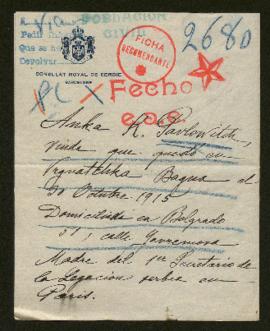 POBLACION
CIVIL
Pedir
Que se
Devolver
CONSULAT ROYAL DE SERBIE
FICHA
2680
PC X Fecho
Anka K. Pavlowitch,
viuda que quedó en
Vrgnatchka Bagna el
30 Octubre 1915
Domiciliada en Belgrado
31 calle
Madre del 1er Secretario de
la Legacion serbia en
Paris.